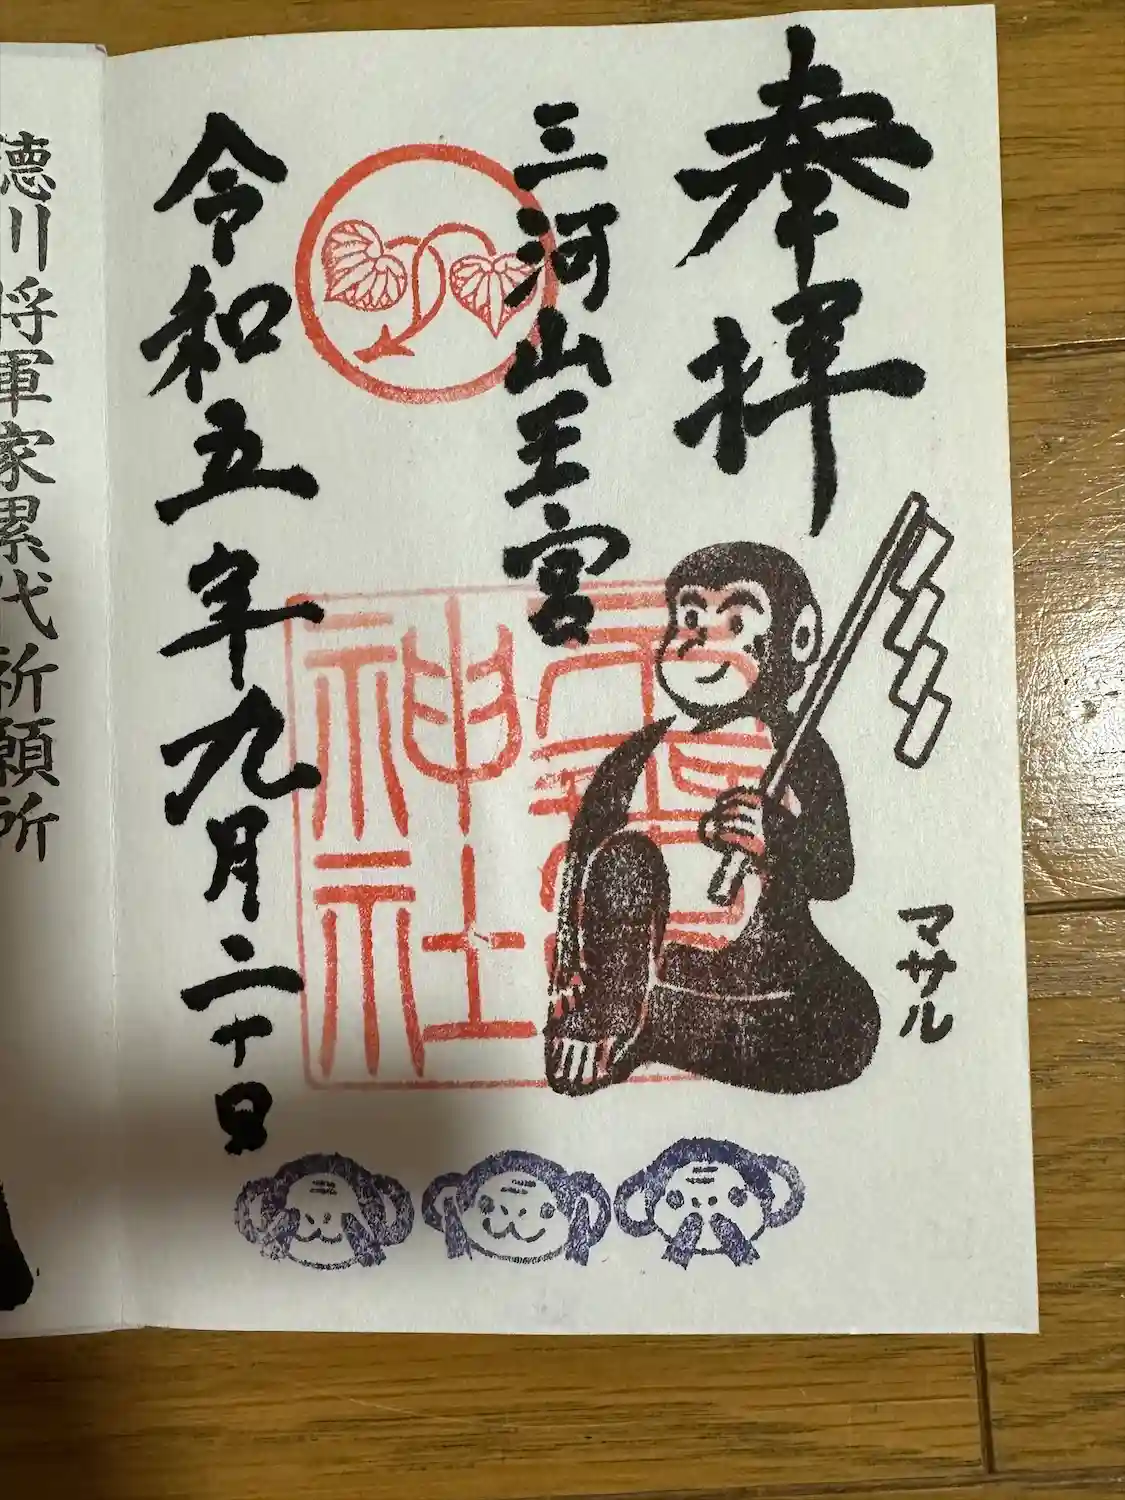 奉拝
マサル
三河山王宮
神社
令和五年九月二十日
徳川将軍家累代祈願所